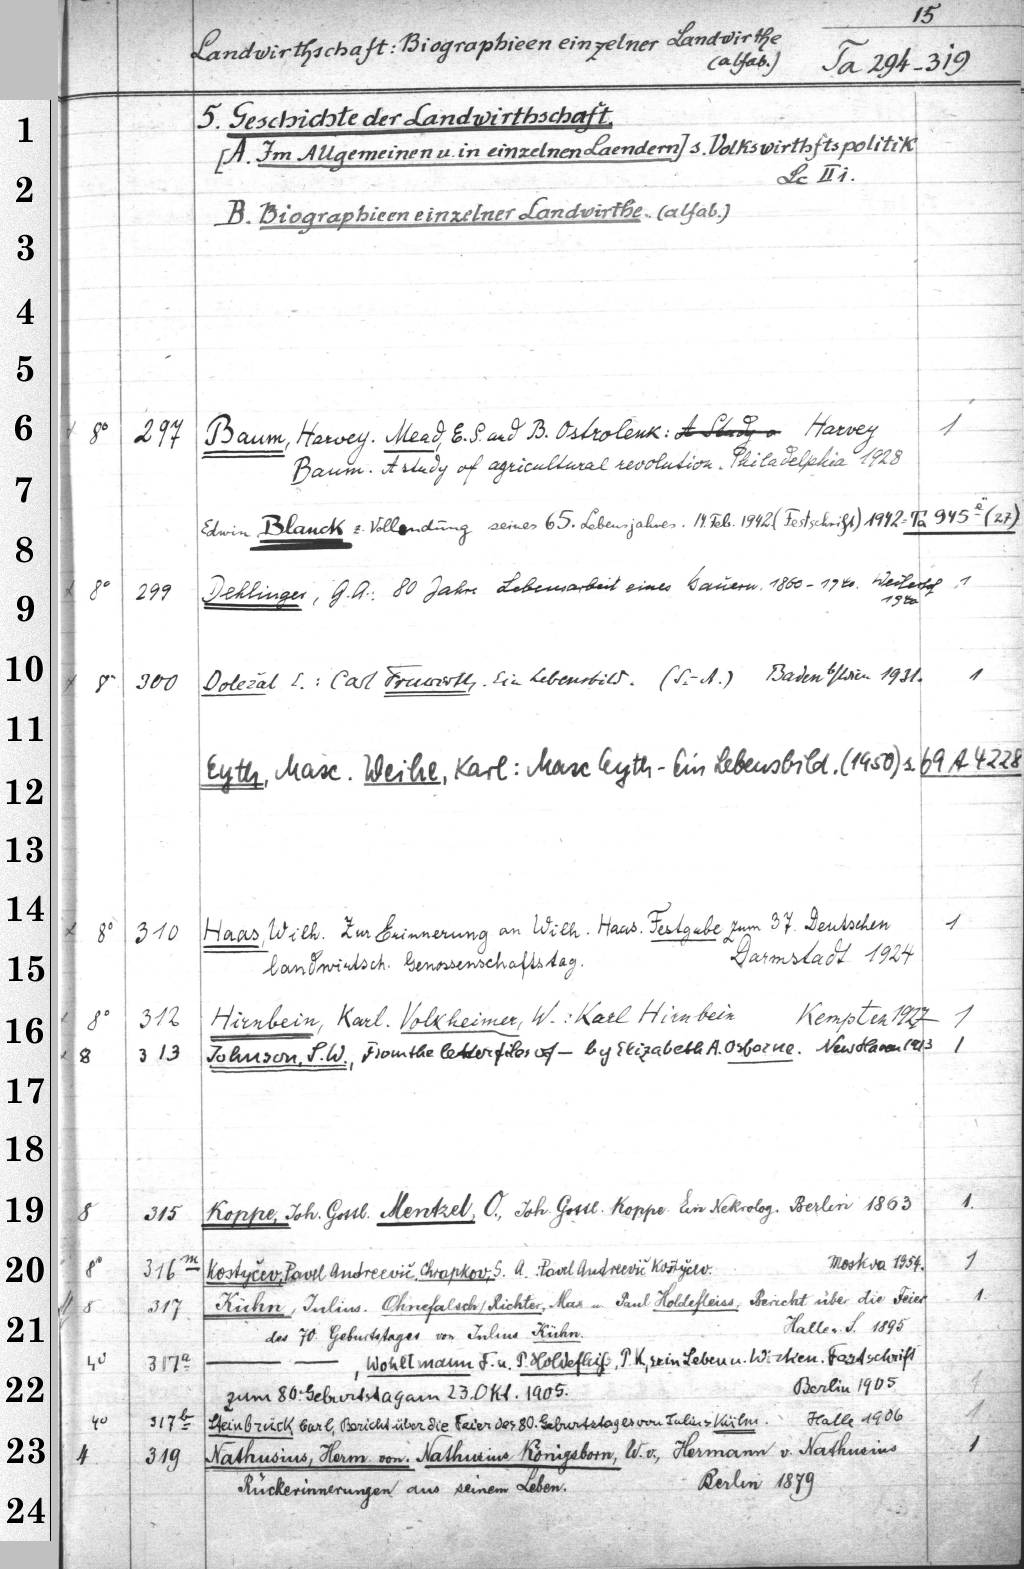 15
Landwirthschaft: Biographieen einzelner Landwirthe
(alfab.) Ta 294-319
1 5. Geschichte der Landwirthschaft.
[A. Im Allgemeinen u. in einzelnen Laendern] s. Volkswirthftspolitik
2 Lc II i.
B. Biographieen einzelner Landwirthe. (alfab.)
3
4
5
6 8° 297 Baum, Harvey. Mead, E.S. and B. Ostrolenk: A Study o Harvey 1
Baum. A study of agricultural revolution. Philadelphia 1928
7
Edwin Blanck z. Vollendung seines 65. Lebensjahres. 14. Feb. 1942 (Festschrift) 1942 = Ta 945 (27)
8
9 8° 299 Dehlinger, G.A.: 80 Jahre Lebensarbeit eines Bauern. 1860-1940. Weilerhof 1
1940
10 8° 300 Doležal E.: Carl Fruwirth. Ein Lebensbild. (S.-A.) Baden b/Wien 1931. 1
11
Eyth, Max. Weihe, Karl: Max Eyth - Ein Lebensbild. (1950) s. 69 A 4228
12
13
14 8° 310 Haas, Wilh. Zur Erinnerung an Wilh. Haas. Festgabe zum 37. Deutschen 1
15 landwirtsch. Genossenschaftstag. Darmstadt 1924
16 8° 312 Hirnbein, Karl. Volkheimer, W.: Karl Hirnbein Kempten 1927 1
8 313 Johnson, S.W., From the letter files of — by Elizabeth A. Osborne. New Haven 1913 1
17
18
19 8 315 Koppe, Joh. Gottl. Mentzel, O., Joh. Gottl. Koppe. Ein Nekrolog. Berlin 1863 1.
20 8° 316 m Kostyčev, Pavel Andreevič, Chrapkov, S. A.: Pavel Andreevič Kostyčev. Moskva 1954. 1
8 317 Kühn, Julius. Ohnefalsch-Richter, Max u. Paul Holdefleiss, Bericht über die Feier 1.
21 des 70. Geburtstages von Julius Kühn. Halle a. S. 1895
4° 317 a — — , Wohltmann F. u. P. Holdefleiß, P. K, sein Leben u. Wirken. Festschrift
22 zum 80. Geburtstag am 23. Okt. 1905. Berlin 1905 1
4° 317 b Steinbrück Carl, Bericht über die Feier des 80. Geburtstages von Julius Kühn. Halle 1906 1
23 4 319 Nathusius, Herm. von. Nathusius Königsborn, W. v., Hermann v. Nathusius 1
Rückerinnerungen aus seinem Leben. Berlin 1879
24